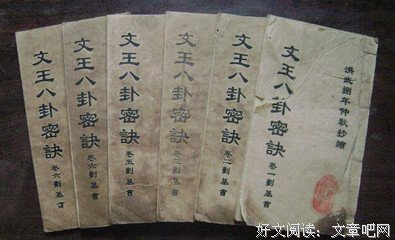 文王八卦密訣
卷六劉基書
文王八卦密訣
卷六劉基書
文王八卦密訣
卷五劉基書
文王八卦密訣
卷二劉基書
文王八卦密訣
卷二劉基書
洪武捌年仲秋抄繪
文王八卦密訣
卷一劉基書
好文阅读：文章吧网